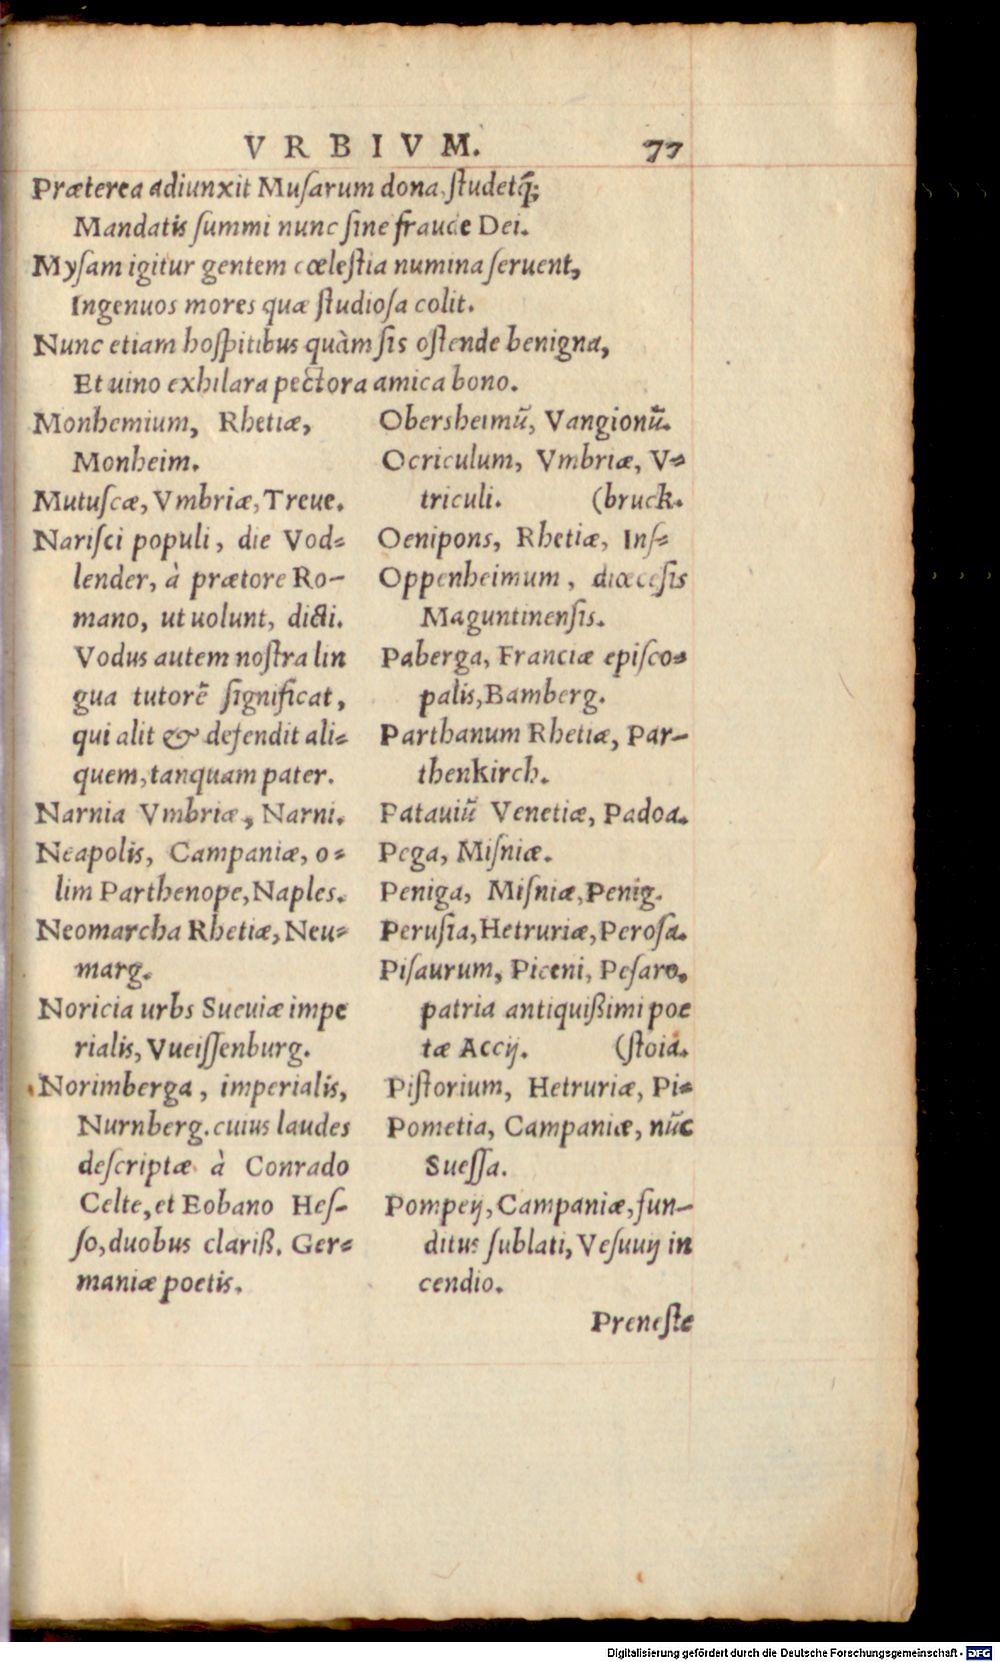 VRBIVM. 77
Præterea adiunxit Muſarum dona, ſtudetq́;
Mandatis ſummi nunc ſine fraude Dei.
Myſam igitur gentem cœleſtia numina ſeruent,
Ingenuos mores quæ ſtudioſa colit.
Nunc etiam hoſpitibus quàm ſis oſtende benigna,
Et uino exhilara pectora amica bono.
Monhemium, Rhetiæ,
Monheim.
Mutuſcæ, Vmbriæ, Treue.
Nariſci populi, die Vod-
lender, à prætore Ro-
mano, ut uolunt, dicti.
Vodus autem noſtra lin
gua tutorē ſignificat,
qui alit & defendit ali-
quem, tanquam pater.
Narnia Vmbriæ, Narni.
Neapolis, Campaniæ, o-
lim Parthenope, Naples.
Neomarcha Rhetiæ, Neu-
marg.
Noricia urbs Sueuiæ impe
rialis, Vueiſſenburg.
Norimberga, imperialis,
Nurnberg. cuius laudes
deſcriptæ à Conrado
Celte, et Eobano Heſ-
ſo, duobus clariß. Ger-
maniæ poetis.
Obersheimū, Vangionū.
Ocriculum, Vmbriæ, V-
triculi. (bruck.
Oenipons, Rhetiæ, Inſ-
Oppenheimum, diœceſis
Maguntinenſis.
Paberga, Franciæ epiſco-
palis, Bamberg.
Parthanum Rhetiæ, Par-
thenkirch.
Patauiū Venetiæ, Padoa.
Pega, Miſniæ.
Peniga, Miſniæ, Penig.
Peruſia, Hetruriæ, Peroſa.
Piſaurum, Piceni, Peſaro,
patria antiquißimi poe
tæ Accij. (ſtoia.
Piſtorium, Hetruriæ, Pi-
Pometia, Campaniæ, nūc
Sueſſa.
Pompeij, Campaniæ, fun-
ditus ſublati, Veſuuij in
cendio.
Preneſte
Digitalisierung gefördert durch die Deutsche Forschungsgemeinschaft - DFG